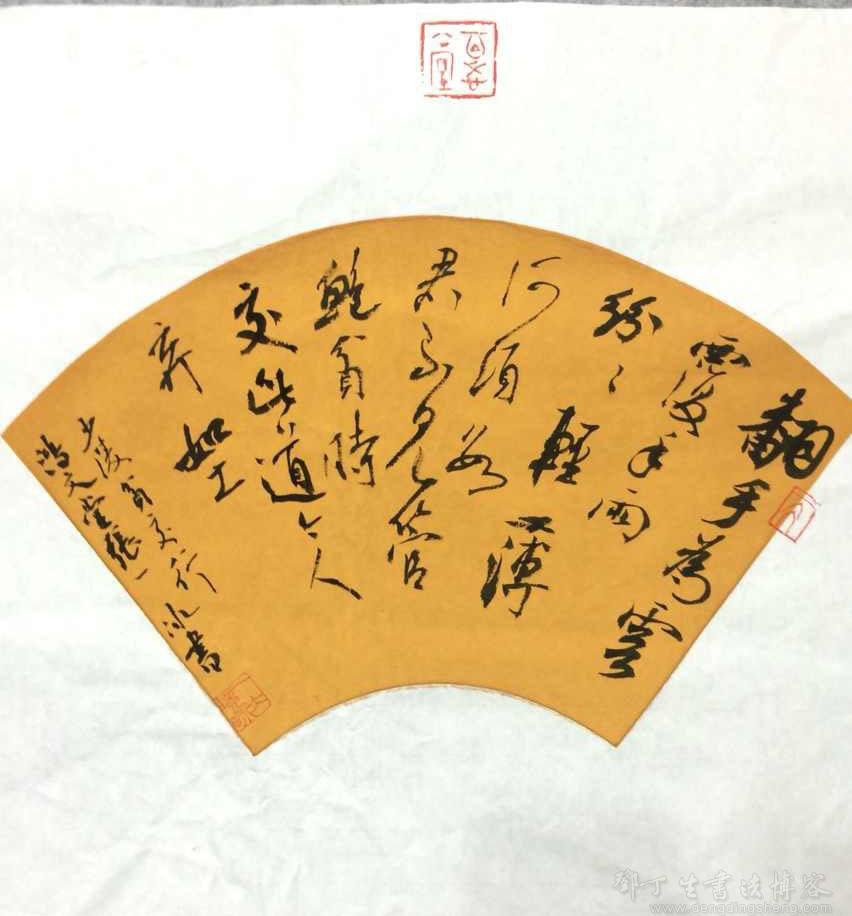 翻手為雲
覆手雨
紛〻輕薄
何須數
君不見管
鮑貧時
交此道今人
弃如土
少陵貧交行
鴻文堂張一冰書
鄧丁生書法博客
www.dengdingsheng.com